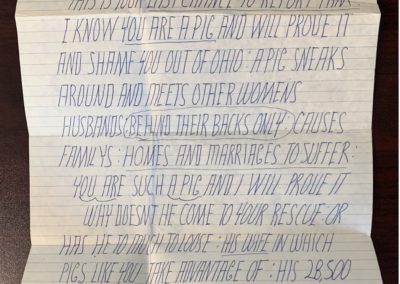 THIS IS YOUR LAST CHANCE TO REPORT THAT:
I KNOW YOU ARE A PIG AND WILL PROVE IT
AND SHAME YOU OUT OF OHIO: A PIG SNEAKS
AROUND AND MEETS OTHER WOMENS
HUSBANDS (BEHIND THEIR BACKS ONLY) CAUSES
FAMILYS: HOMES AND MARRIAGES TO SUFFER:
YOU ARE SUCH A PIG AND I WILL PROVE IT
WAY DOESNT HE COME TO YOUR RESCUE: OR
HAS HE TO MUCH TO LOOSE: HIS WIFE IN WHICH
PIGS LIKE YOU TAKE ADVANTAGE OF: HIS 28,500